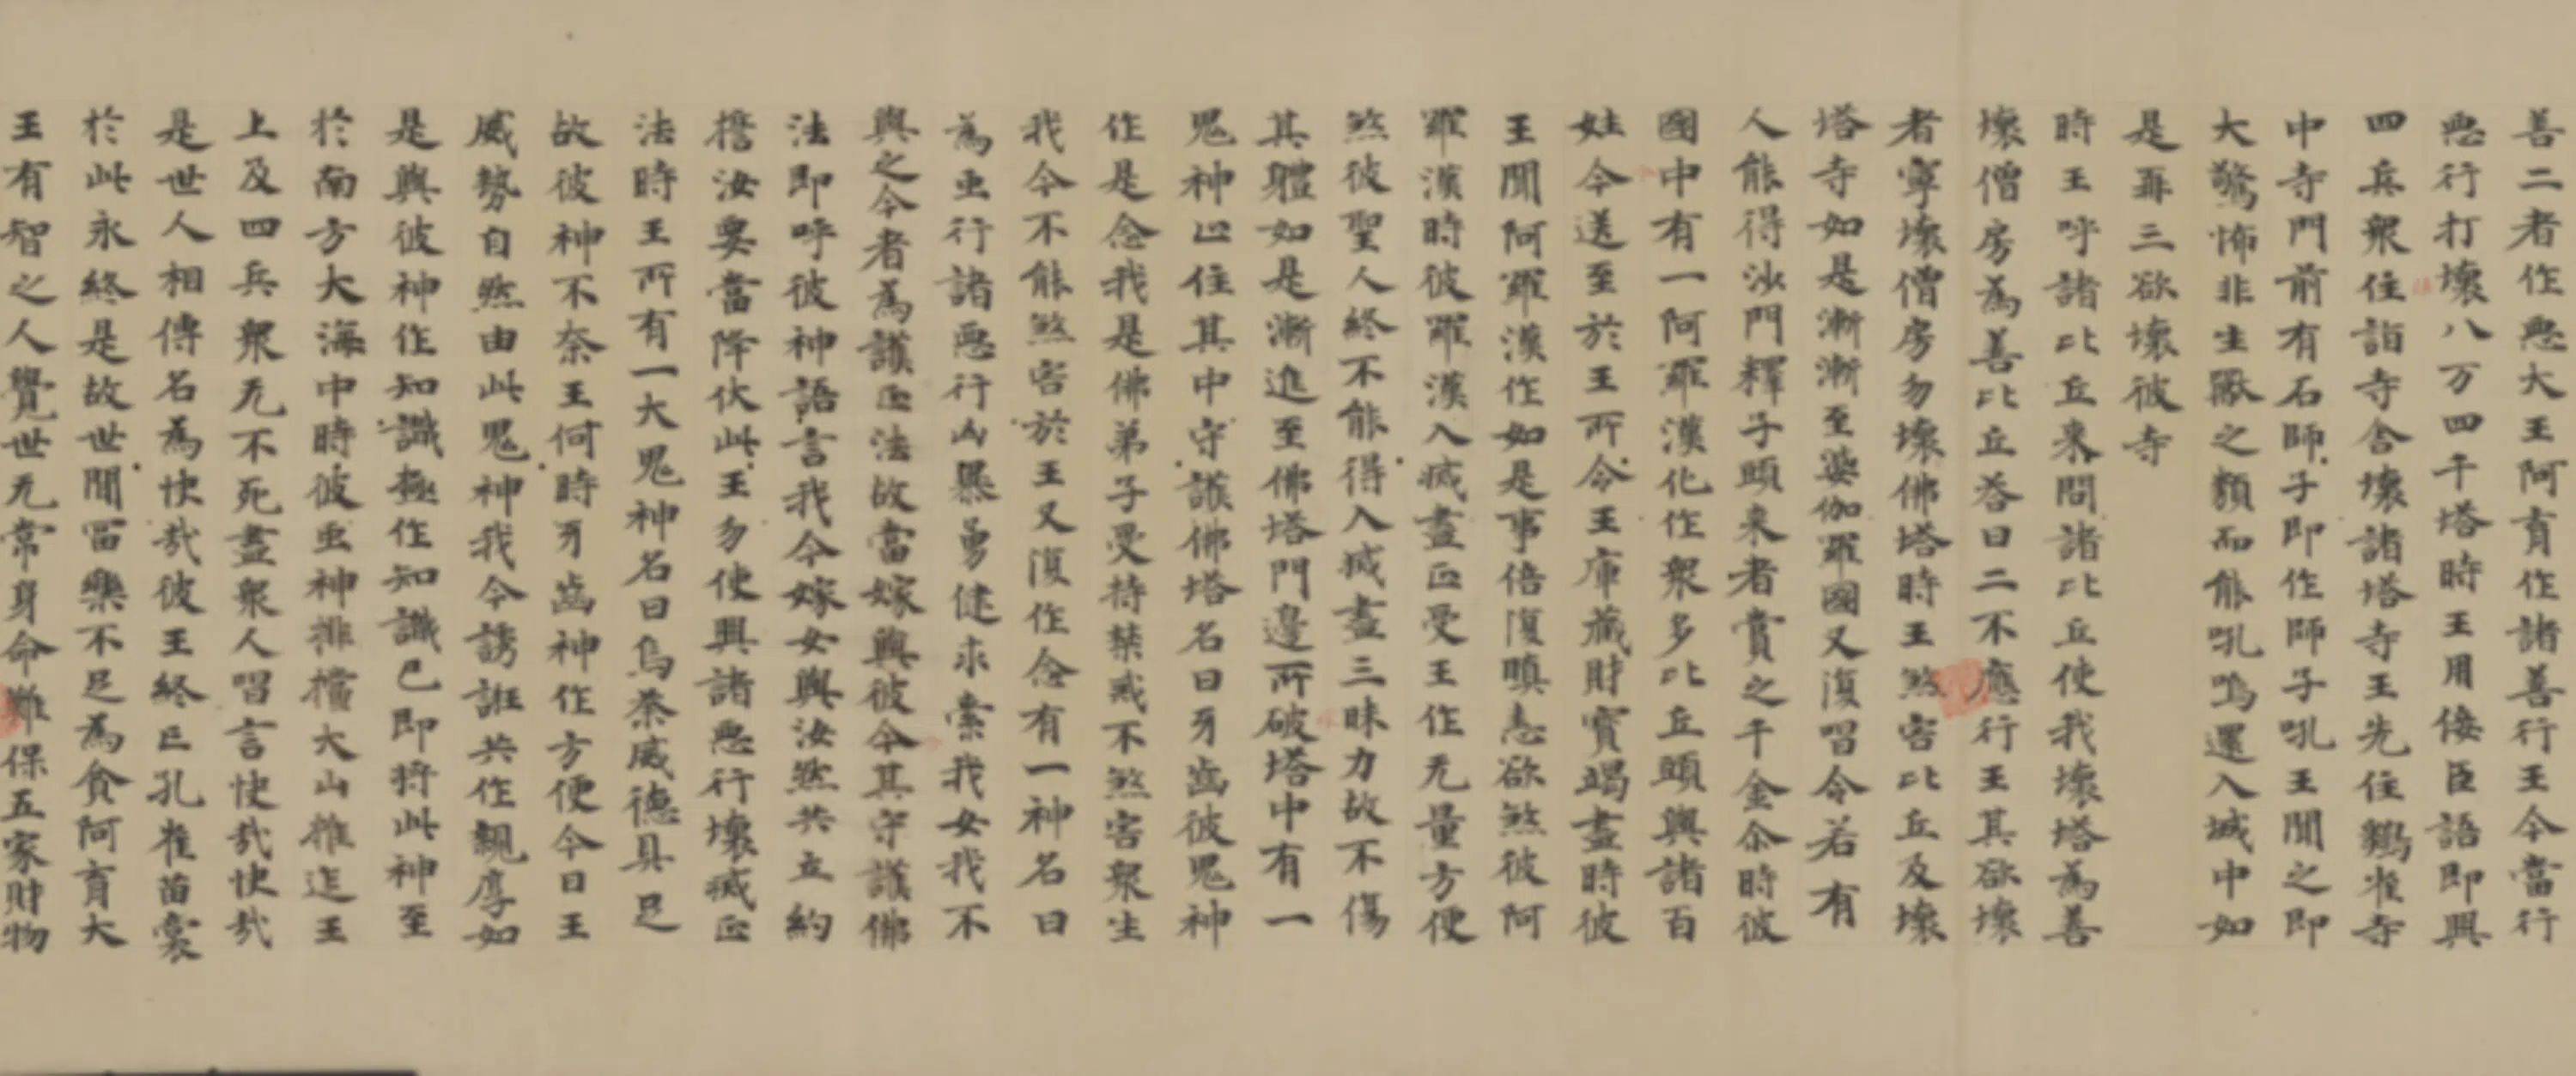 善二者作悪大王阿育作諸善行王今當行
悪行打壞八万四千塔時王用倭臣語即興
四兵衆住詣寺舎壞諸塔寺王先住鷄雀寺
中寺門前有石師子即作師子吼王聞之即
大驚怖非生獸之類而能吼鳴還入城中如
是再三欲壞彼寺
時王呼諸比丘来問諸比丘使我壞塔為善
壞僧房為善比丘荅曰二不應行王其欲壞
者寧壞僧房勿壞佛塔時王煞害比丘及壞
塔寺如是漸漸至婆伽羅國又復唱令若有
人能得沙門釋子頭来者賞之千金尒時彼
國中有一阿羅漢化作衆多比丘頭與諸百
姓令送至於王所令王庫藏財寶竭盡時彼
王聞阿羅漢作如是事倍復瞋恚欲煞彼阿
羅漢時彼羅漢入滅盡正受王作无量方便
煞彼聖人終不能得入滅盡三昧力故不傷
其體如是漸進至佛塔門邊所破塔中有一
鬼神止住其中守護佛塔名曰牙齒彼鬼神
作是念我是佛弟子受持禁戒不煞害衆生
我今不能煞害於王又復作念有一神名曰
為虫行諸悪行凶暴勇健求索我女我不
與之今者為護正法故當嫁與彼令其守護佛
法即呼彼神語言我今嫁女與汝然共立約
擔汝要當降伏此王勿使興諸悪行壞滅正
法時王所有一大鬼神名曰烏茶威德具足
故彼神不奈王何時牙齒神作方便今日王
威勢自然由此鬼神我今誘誑共作親厚如
是與彼神作知識極作知識已即将此神至
於南方大海中時彼虫神排擋大山推迮王
上及四兵衆无不死盡衆人唱言快哉快哉
是世人相傳名為快哉彼王終亡孔雀苗裔
於此永終是故世間冨樂不足為貪阿育大
王有智之人覺世无常身命難保五家財物